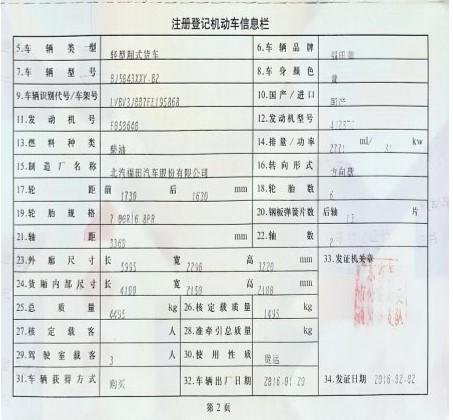 注册登记机动车信息栏
5.车辆类型 轻型厢式货车 6.车辆品牌
7.车辆型号 BJ5043XXY-B2 8.车身颜色 黄
9.车辆识别代号/车架号 10.国产/进口 国产
11.发动机号 12.发动机型号
13.燃料种类 柴油 14.排量/功率 ml/ kw
15.制造厂名称 北汽福田汽车股份有限公司 16.转向形式 方向盘
17.轮距 前 1730 后 1630 mm 18.轮胎数 6
19.轮胎规格 7.00R16 8PR 20.钢板弹簧片数 后轴 片
21.轴距 3360 mm 22.轴数 2
23.外廓尺寸 长 5995 宽 2290 高 3220 mm 33.发证机关章
24.货厢内部尺寸 长 4180 宽 2150 高 2100 mm
25.总质量 4495 kg 26.核定载质量 1495 kg
27.核定载客 人 28.准牵引总质量 kg
29.驾驶室载客 3 人 30.使用性质 货运
31.车辆获得方式 购买 32.车辆出厂日期 2016-01-20 34.发证日期 2016-02-02
第2页